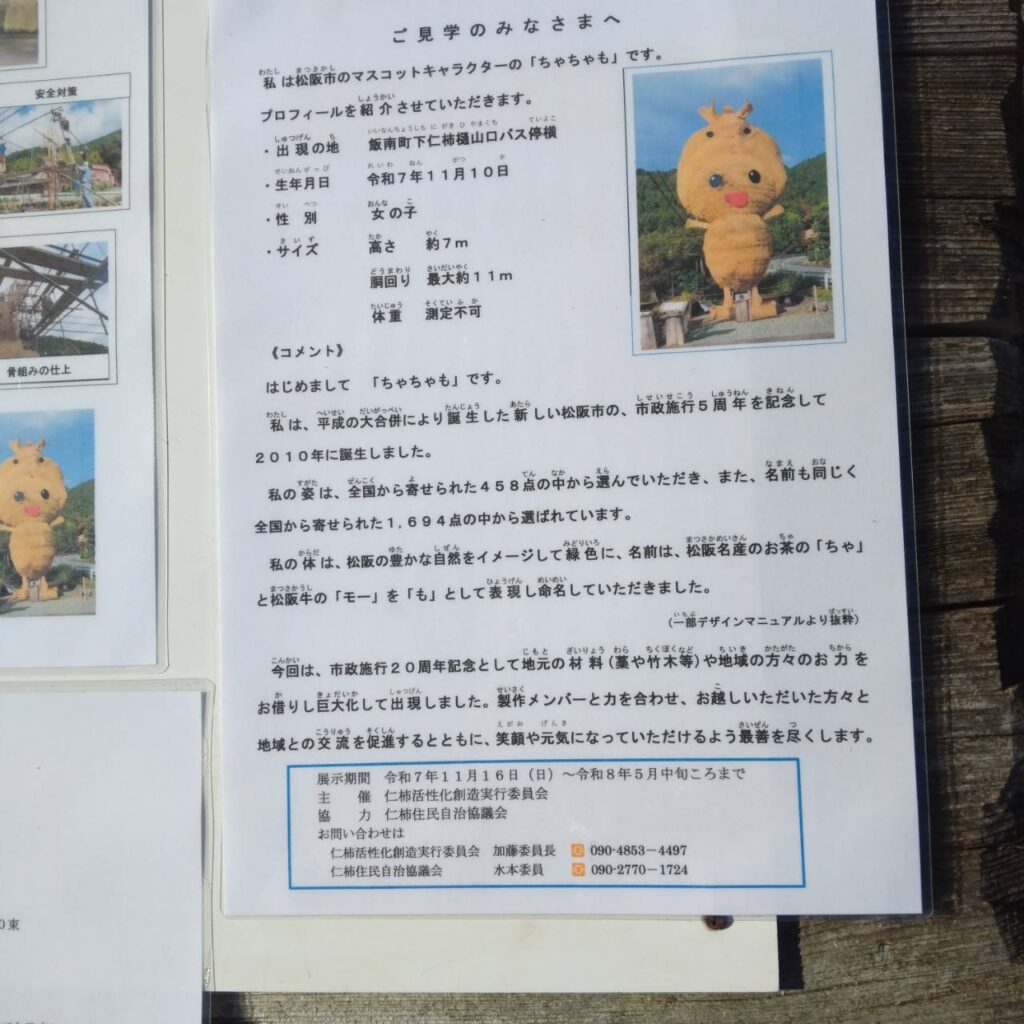 安全対策
骨組みの仕上
0東
ご見学のみなさまへ
私は松阪市のマスコットキャラクターの「ちゃちゃも」です。
プロフィールを紹介させていただきます。
・出現の地 飯南町下仁柿樋山口バス停横
・生年月日 令和7年11月10日
・性別 女の子
・サイズ 高さ 約7m
胴回り 最大約11m
体重 測定不可
《コメント》
はじめまして 「ちゃちゃも」です。
私は、平成の大合併により誕生した新しい松阪市の、市政施行5周年を記念して
2010年に誕生しました。
私の姿は、全国から寄せられた458点の中から選んでいただき、また、名前も同じく
全国から寄せられた1,694点の中から選ばれています。
私の体は、松阪の豊かな自然をイメージして緑色に、名前は、松阪名産のお茶の「ちゃ」
と松阪牛の「モー」を「も」として表現し命名していただきました。
(一部デザインマニュアルより抜粋)
今回は、市政施行20周年記念として地元の材料(藁や竹木等)や地域の方々のお力を
お借りし巨大化して出現しました。製作メンバーと力を合わせ、お越しいただいた方々と
地域との交流を促進するとともに、笑顔や元気になっていただけるよう最善を尽くします。
展示期間 令和7年11月16日(日)~令和8年5月中旬ころまで
主催 仁柿活性化創造実行委員会
協力 仁柿住民自治協議会
お問い合わせは
仁柿活性化創造実行委員会 加藤委員長 090-4853-4497
仁柿住民自治協議会 水本委員 090-2770-1724